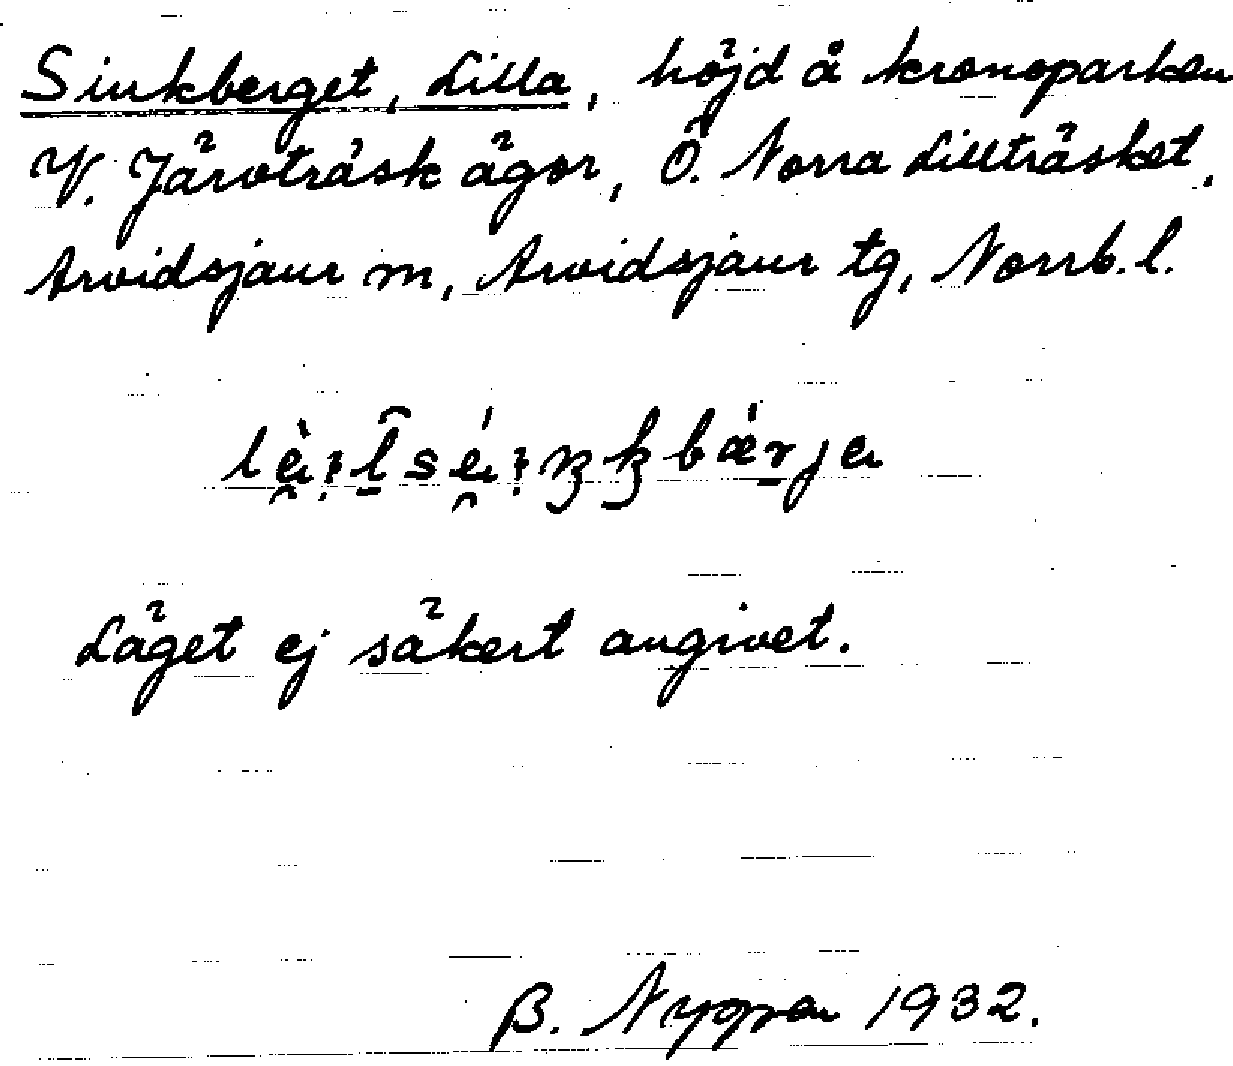 Sinkberget, Lilla, höjd å kronoparken
V. Järvträsk ägor, Ö. Norra Lillträsket,
Arvidsjaur m, Arvidsjaur tg, Norrb. l.
Läget ej säkert angivet.
B. Nyman 1932.